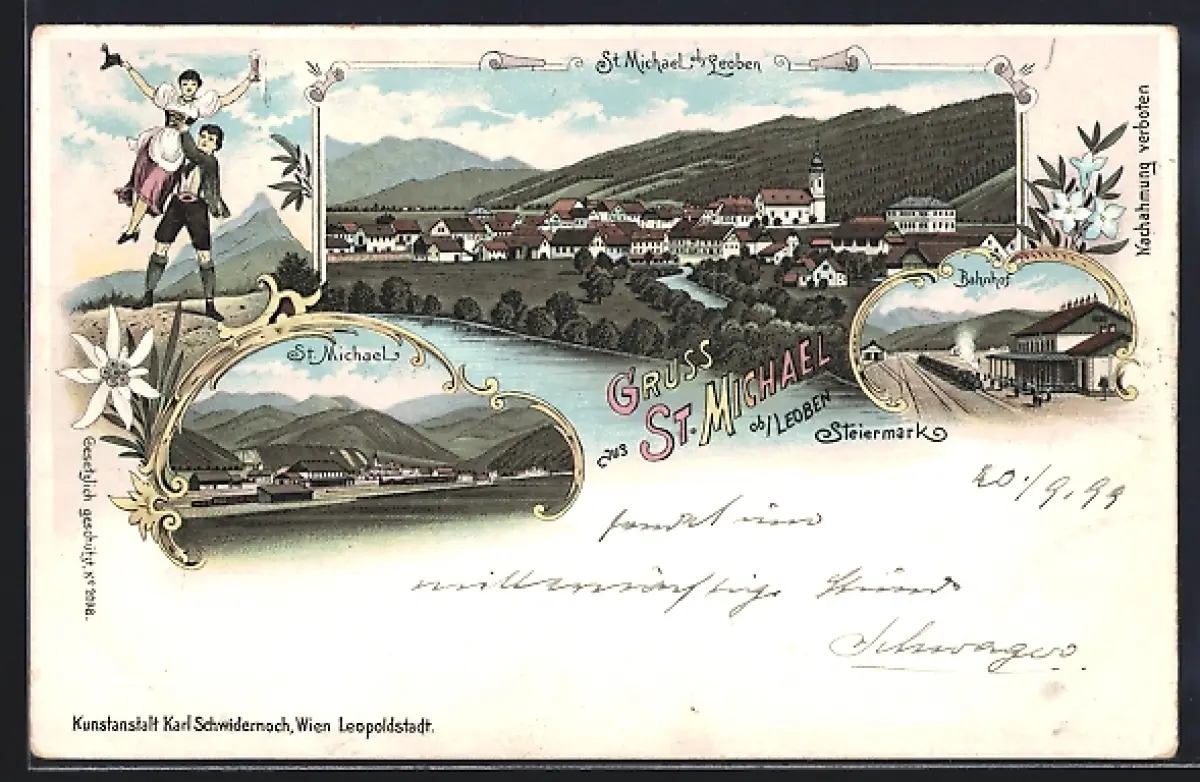 St. Michael ob/ Leoben
Nachahmung verboten
Bahnhof
St. Michael
GRUSS
aus ST. MICHAEL
ob/ LEOBEN
Steiermark
Gesetzlich geschützt. No 2098.
20./9.99
sendet um
mitternächtige Stund
Schwager
Kunstanstalt Karl Schwidernoch, Wien Leopoldstadt.